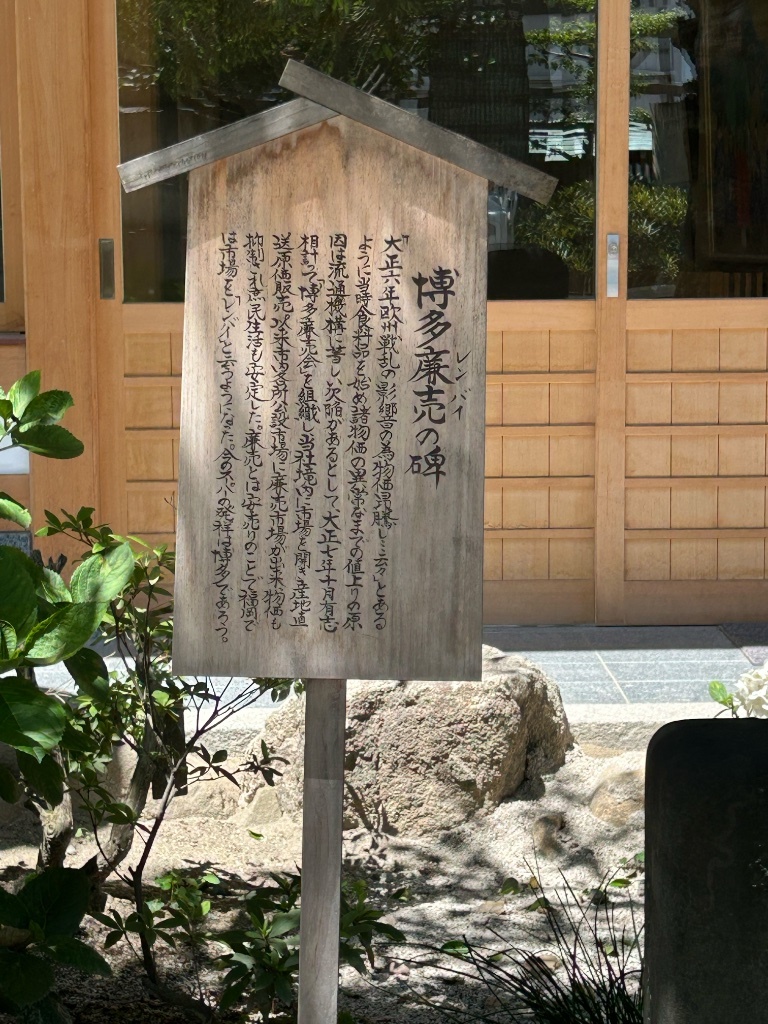 博多廉売の碑
レンバイ
「大正六年欧州戦乱の影響の為物価昂騰し云々」とある
ように当時食料品を始め諸物価の異常なまでの値上りの原
因は流通機構に著しい欠陥があるとして、大正七年十月有志
相計って「博多廉売会」を組織し当社境内に市場を開き産地直
送原価販売。以来市内各所公設市場に廉売市場が出来物価も
抑制され庶民生活も安定した。廉売とは安売りのことで福岡で
は市場を「レンバイ」と云うようになった。今のスーパーの発祥は博多であろう。